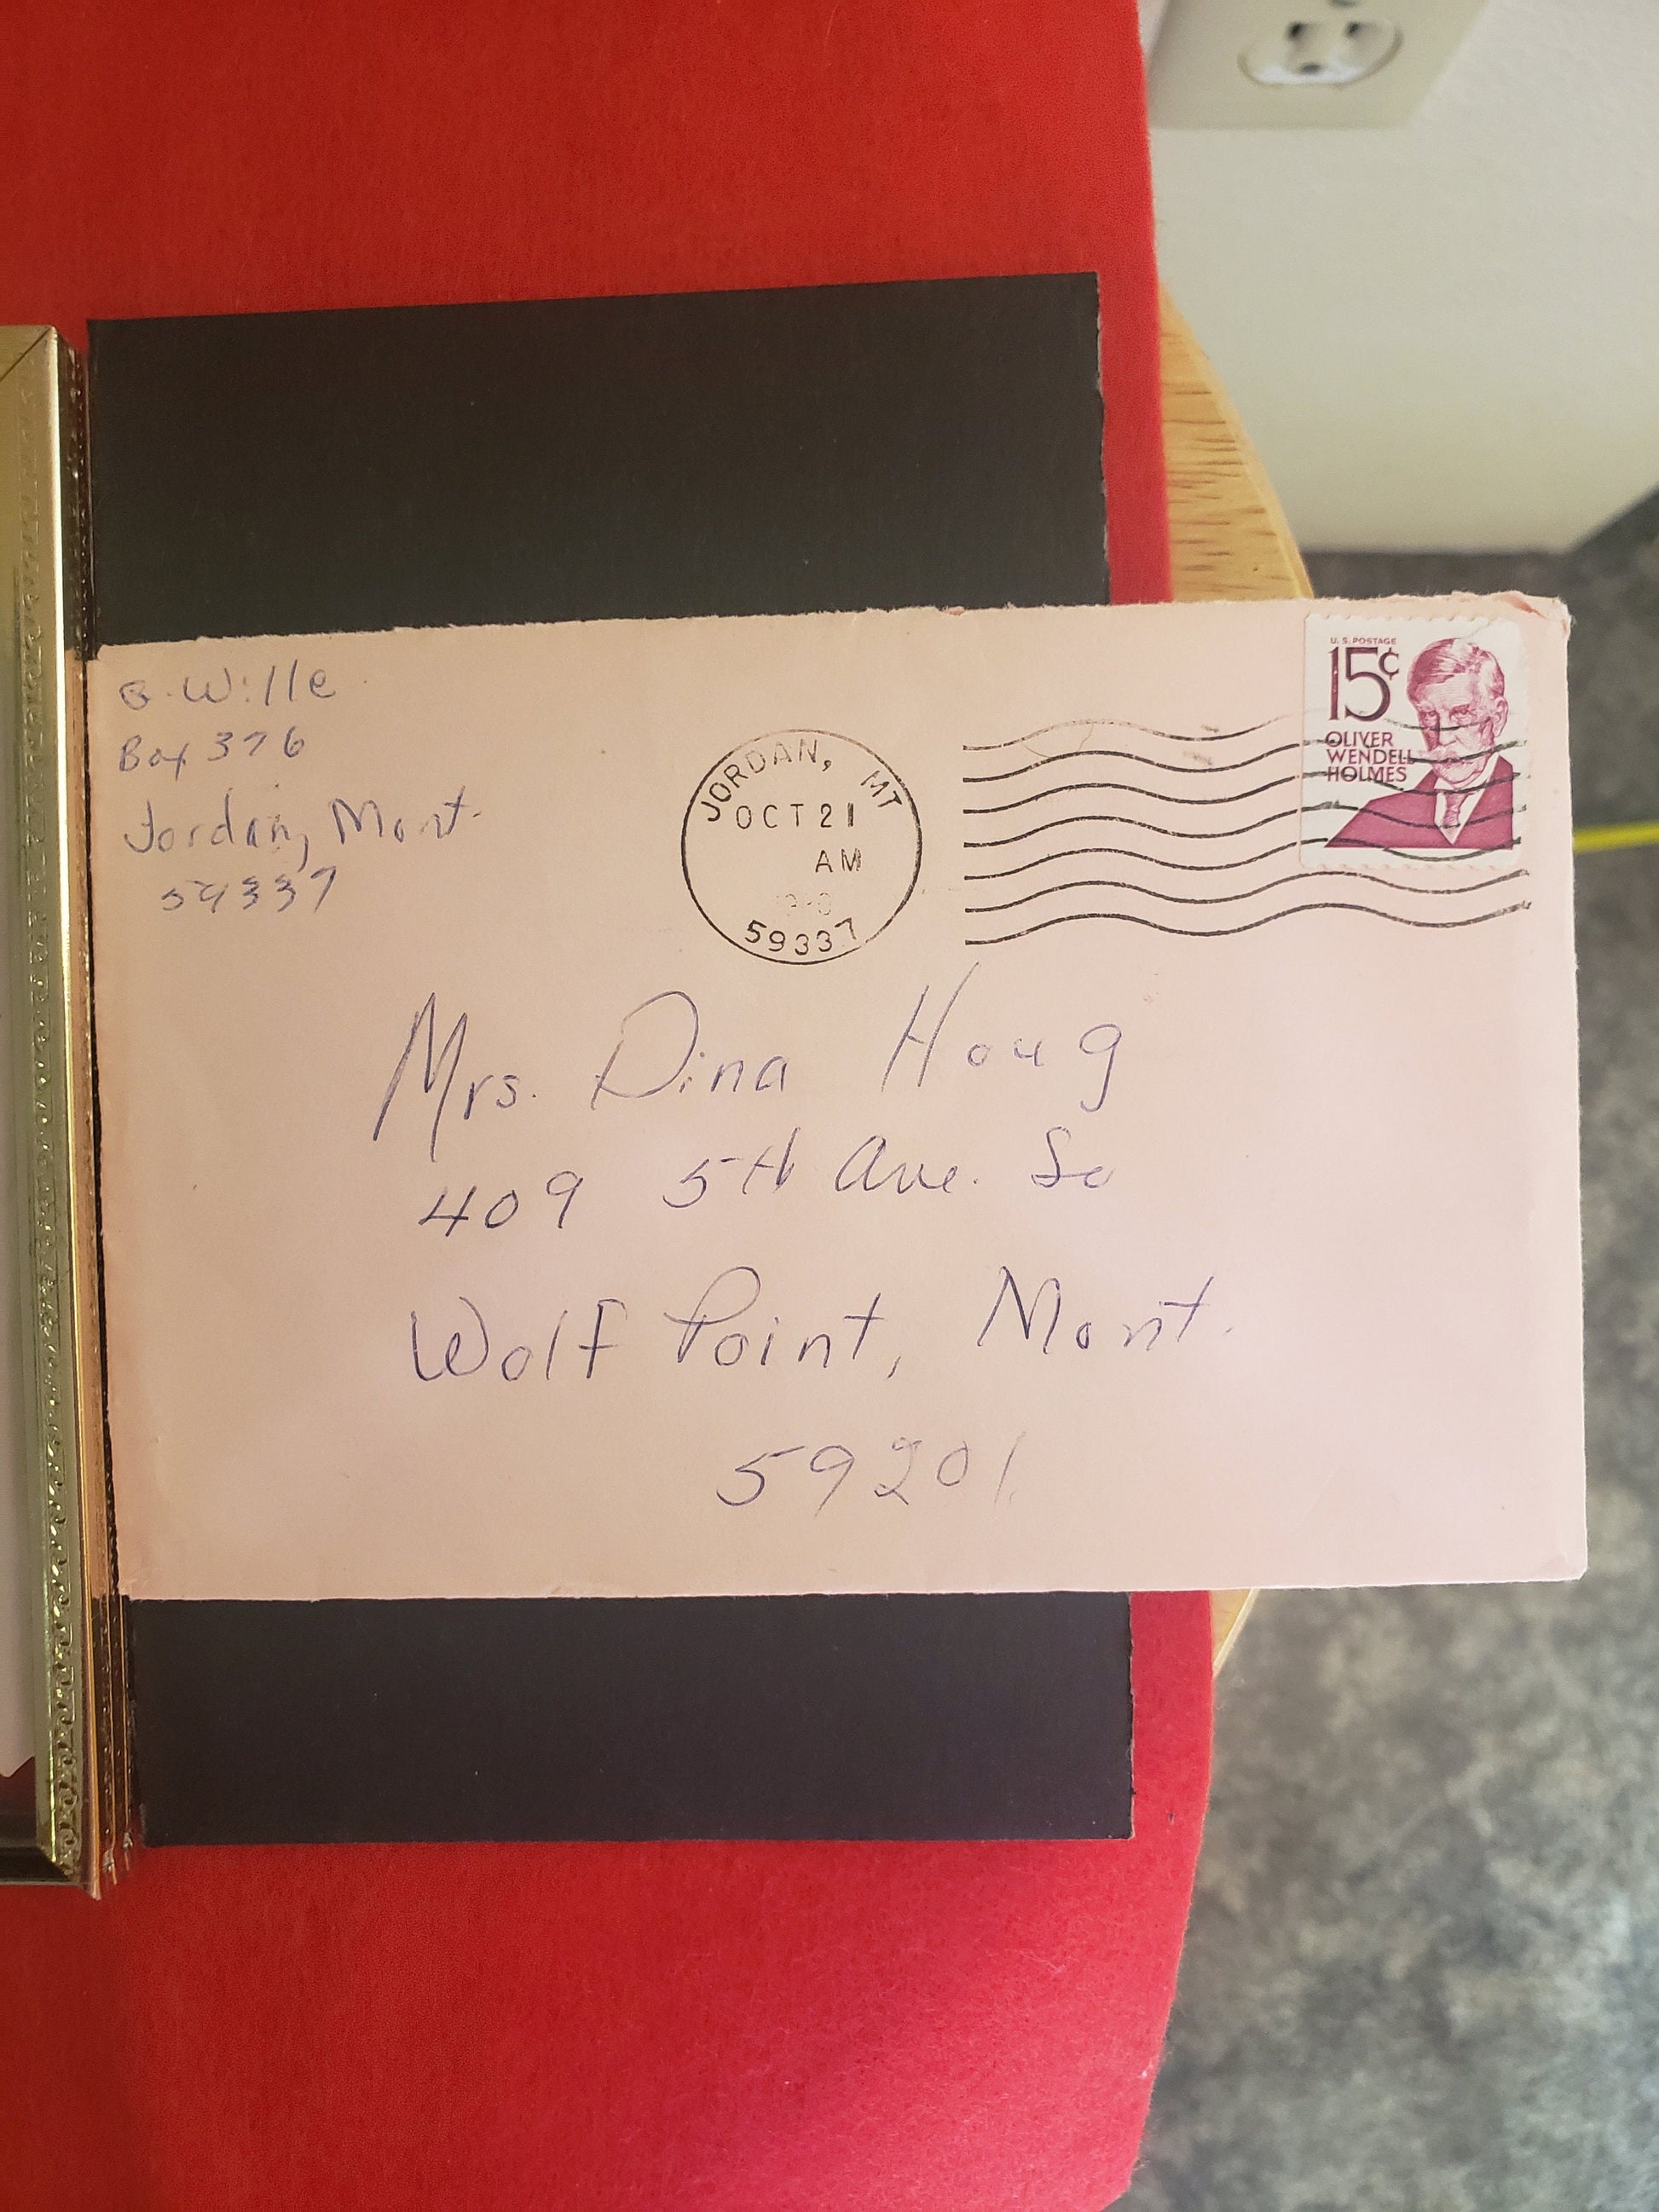 B. Wille
Box 376
Jordan, Mont.
59337
JORDAN, MT
OCT 21
AM
59337
U.S. POSTAGE
15¢
OLIVER
WENDELL
HOLMES
Mrs. Dina Houg
409 5th Ave. So
Wolf Point, Mont.
59201